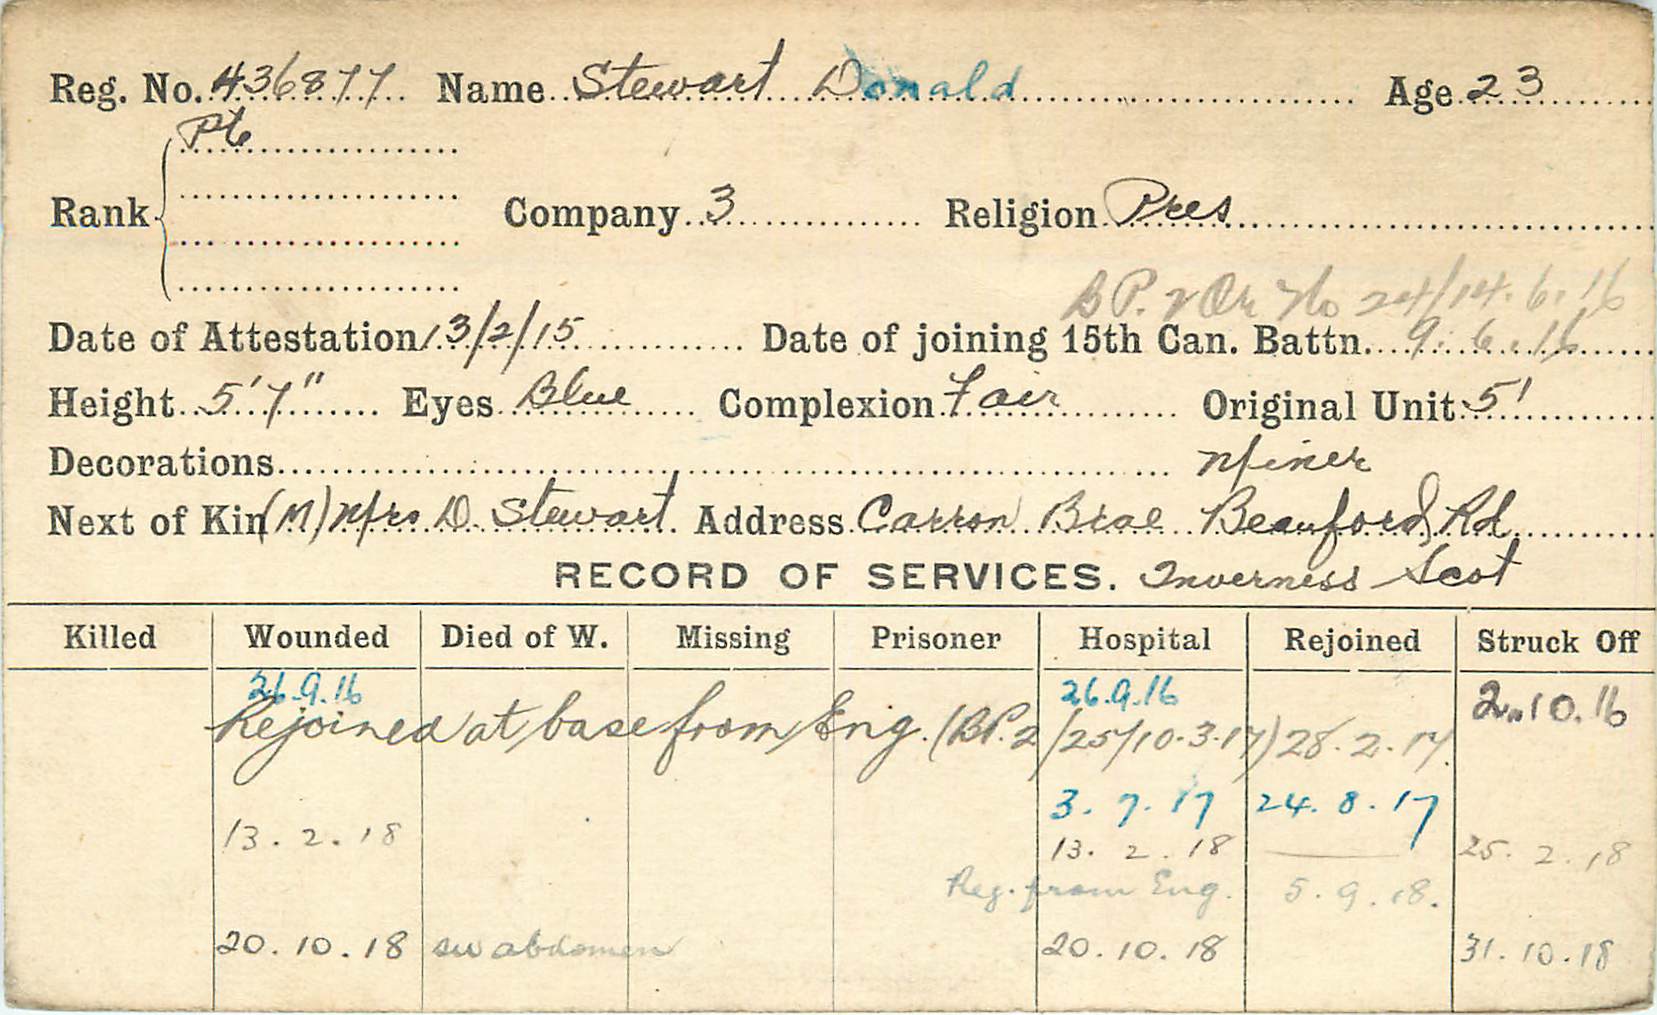 Reg. No. 436877 Name Stewart Donald Age 23
Pte
Rank Company 3 Religion Pres
B P. 2 Or No 24/14.6.16
Date of Attestation 13/2/15 Date of joining 15th Can. Battn. 9.6.16
Height 5'7" Eyes Blue Complexion Fair Original Unit 5'
Decorations Miner
Next of Kin (M) Mrs D. Stewart Address Carron Brae Beauford Rd
RECORD OF SERVICES. Inverness Scot
Killed Wounded Died of W. Missing Prisoner Hospital Rejoined Struck Off
26.9.16 26.9.16 2.10.16
Rejoined at base from Eng. (BP.2/25/10.3.17) 28.2.17.
3.7.17 24.8.17
13.2.18 13.2.18 25.2.18
from Eng. 5.9.18.
20.10.18 sw abdomen 20.10.18 31.10.18